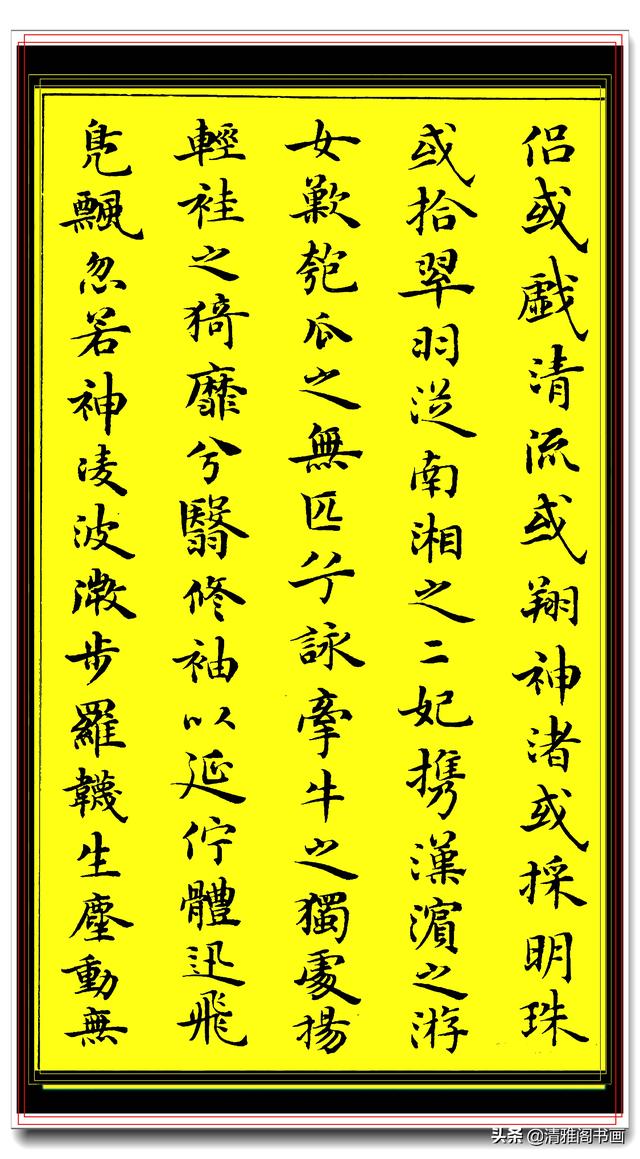 侣或戯清流或翔神渚或採明珠
或拾翠羽従南湘之二妃携漢濱之游
女歎匏瓜之無匹兮詠牽牛之獨處揚
輕袿之猗靡兮翳修袖以延佇體迅飛
鳧飄忽若神凌波微步羅韈生塵動無
头条 @清雅阁书画